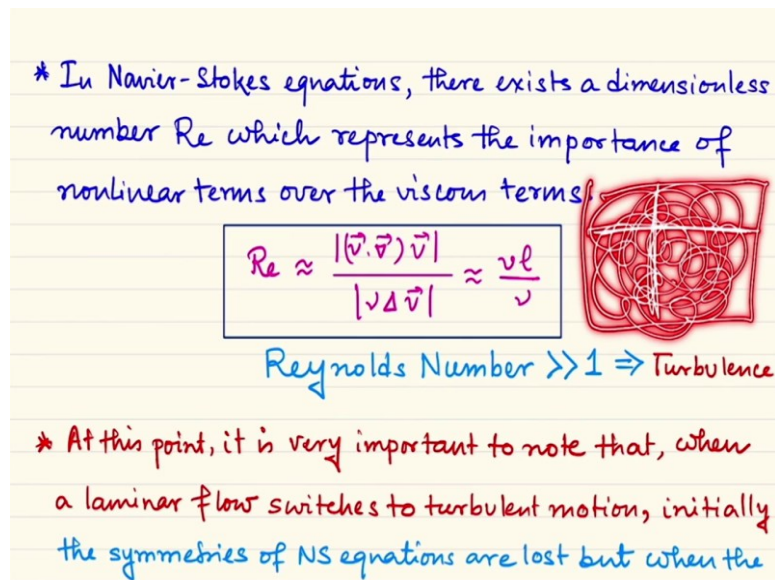 * In Navier-Stokes equations, there exists a dimensionless
number Re which represents the importance of
nonlinear terms over the viscous terms.
Re ≈ |(v⃗.∇⃗)v⃗| / |νΔv⃗| ≈ vl/ν
Reynolds Number >>1 ⇒ Turbulence
* At this point, it is very important to note that, when
a laminar flow switches to turbulent motion, initially
the symmetries of NS equations are lost but when the